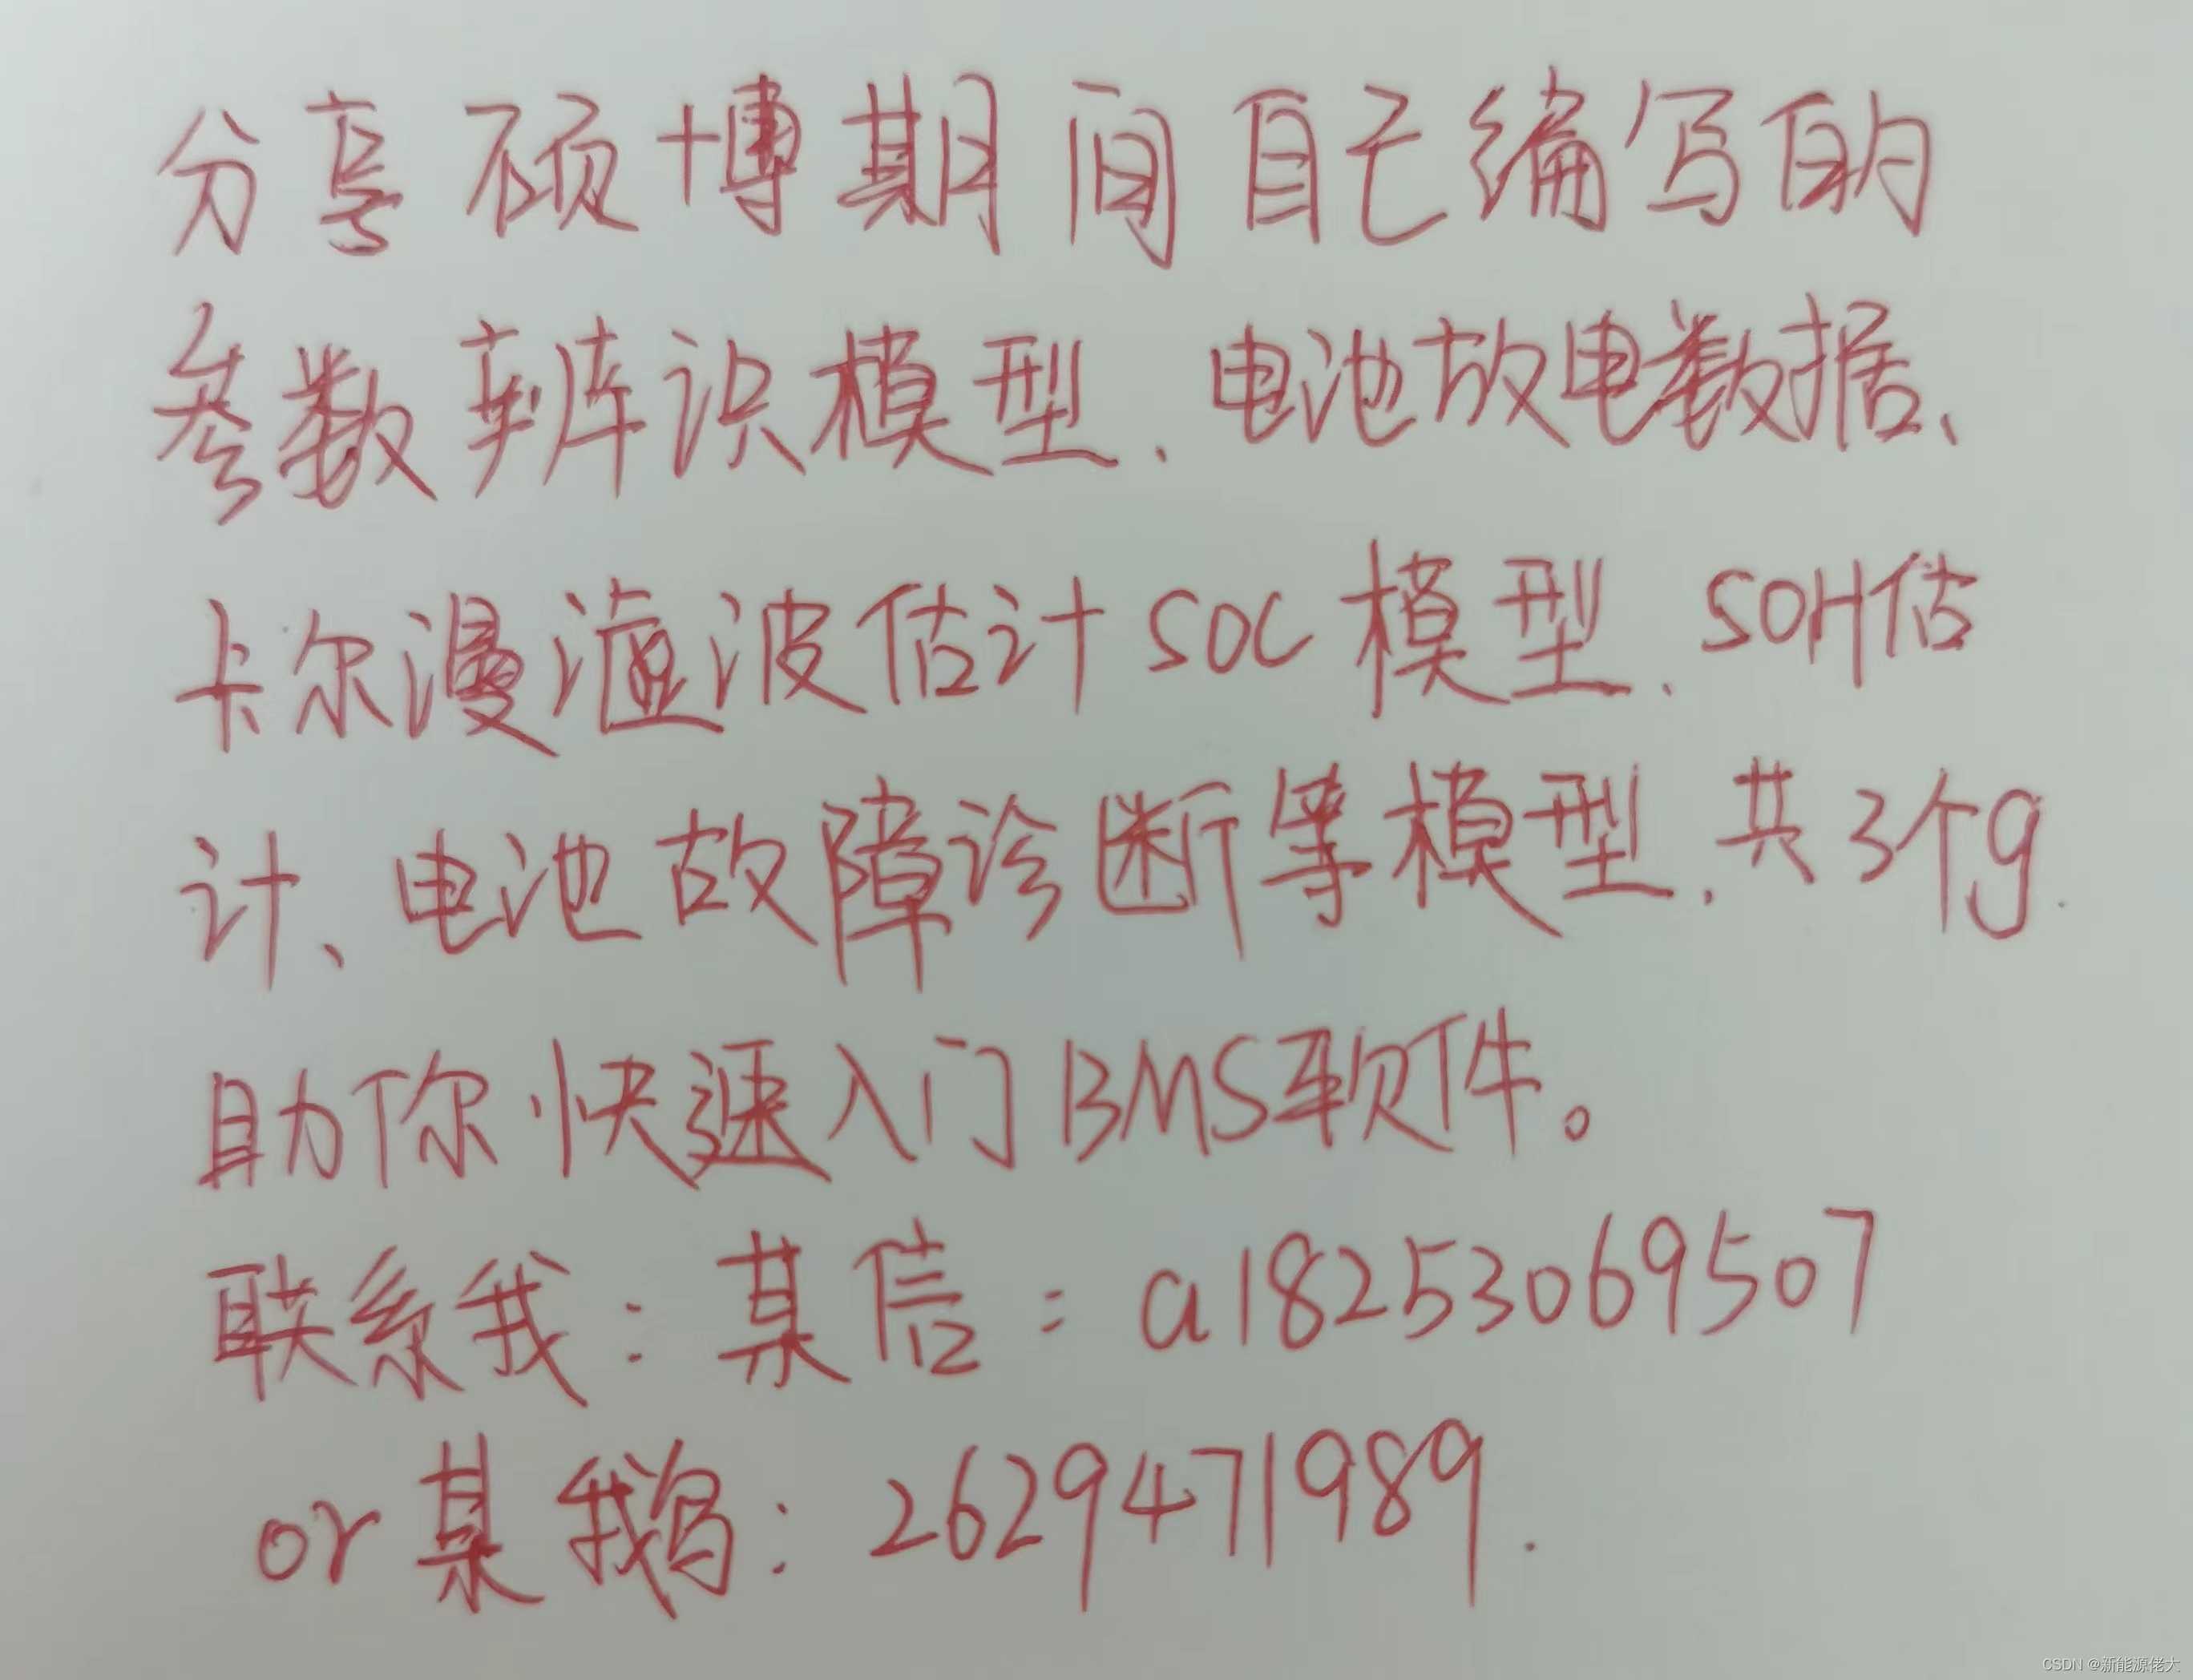 分享硕博期间自己编写的
参数辨识模型、电池放电数据、
卡尔漫滤波估计SOC模型、SOH估
计、电池故障诊断等模型,共3个g.
助你快速入门BMS软件。
联系我:某信:a18253069507
or某鹅:2629471989.
CSDN @新能源佬大